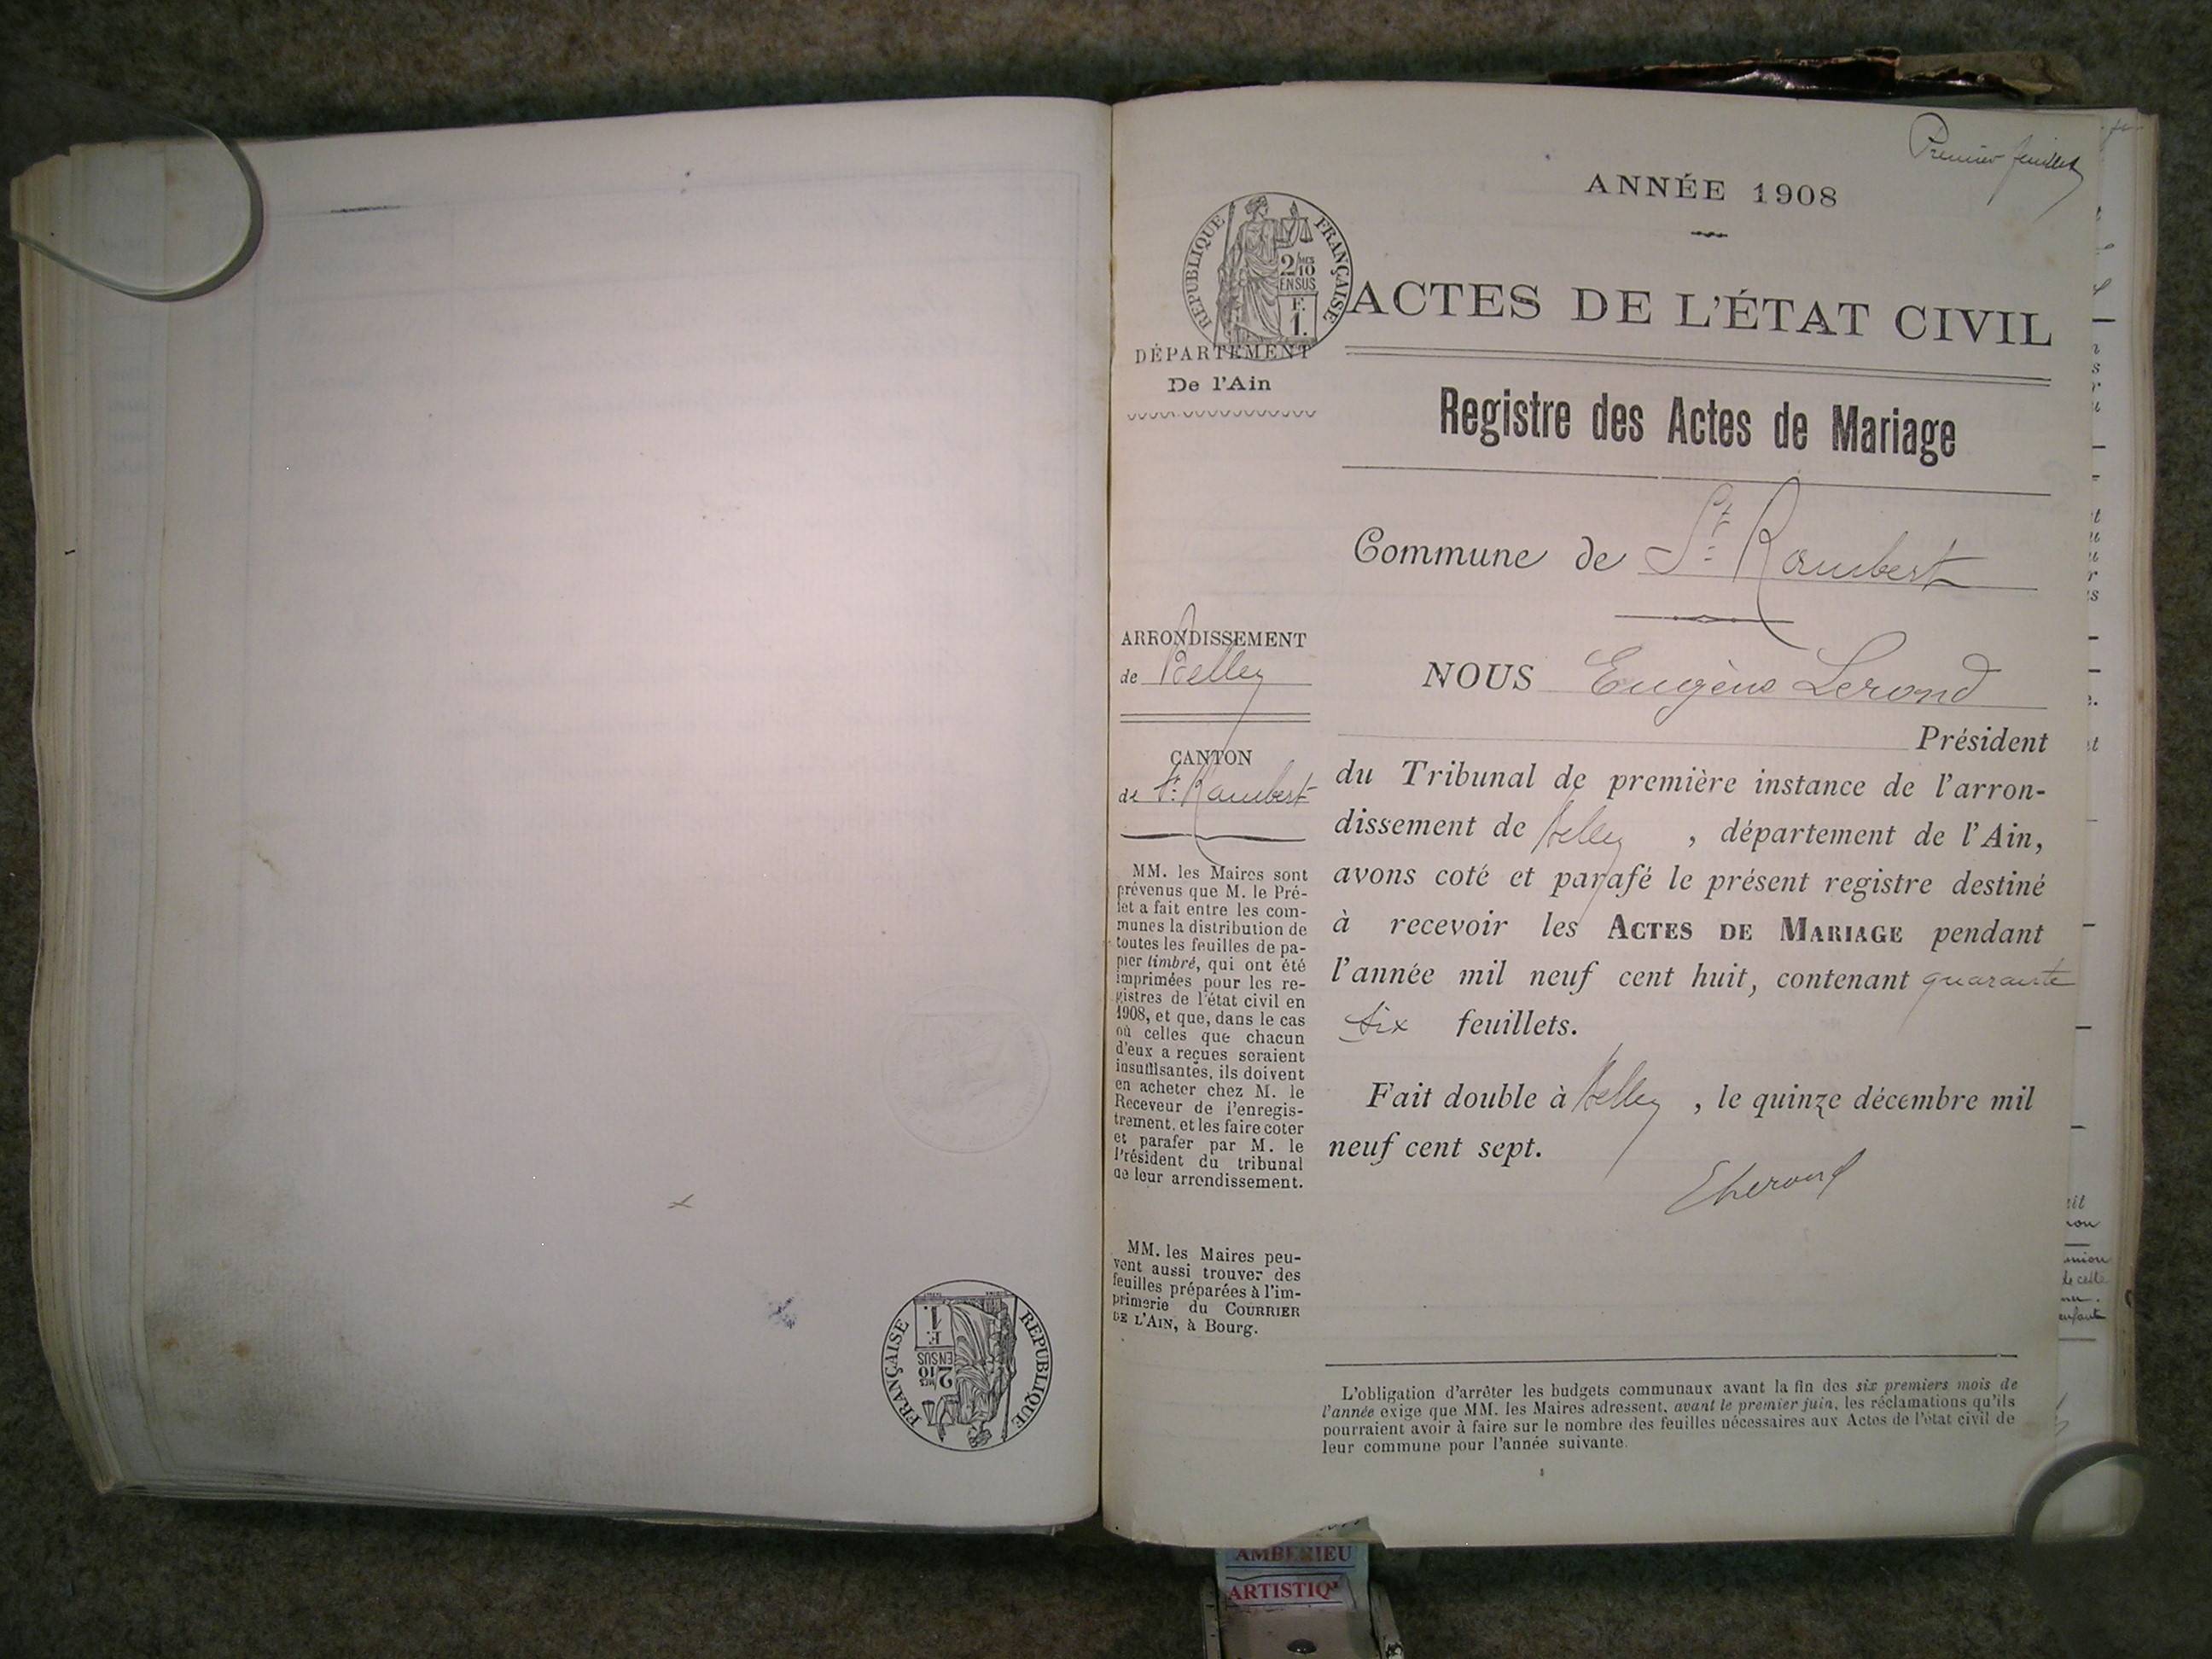 Premier feuillet
ANNÉE 1908
RÉPUBLIQUE FRANÇAISE
2/10 MES
EN SUS
F.
1.
ACTES DE L'ÉTAT CIVIL
DÉPARTEMENT
De l'Ain
Registre des Actes de Mariage
Commune de St Rambert
ARRONDISSEMENT
de Belley
CANTON
de St Rambert
MM. les Maires sont
prévenus que M. le Pré-
fet a fait entre les com-
munes la distribution de
toutes les feuilles de pa-
pier timbré, qui ont été
imprimées pour les re-
gistres de l'état civil en
1908, et que, dans le cas
où celles que chacun
d'eux a reçues seraient
insuffisantes, ils doivent
en acheter chez M. le
Receveur de l'enregis-
trement, et les faire coter
et parafer par M. le
Président du tribunal
de leur arrondissement.
MM. les Maires peu-
vent aussi trouver des
feuilles préparées à l'im-
primerie du COURRIER
DE L'AIN, à Bourg.
NOUS Eugène Lerond
Président
du Tribunal de première instance de l'arron-
dissement de Belley , département de l'Ain,
avons coté et parafé le présent registre destiné
à recevoir les ACTES DE MARIAGE pendant
l'année mil neuf cent huit, contenant quarante
six feuillets.
Fait double à Belley , le quinze décembre mil
neuf cent sept.
ELerond
L'obligation d'arrêter les budgets communaux avant la fin des six premiers mois de
l'année exige que MM. les Maires adressent, avant le premier juin, les réclamations qu'ils
pourraient avoir à faire sur le nombre des feuilles nécessaires aux Actes de l'état civil de
leur commune pour l'année suivante.
RÉPUBLIQUE FRANÇAISE
2/10 MES
EN SUS
F.
1.
AMBERIEU
ARTISTIQ